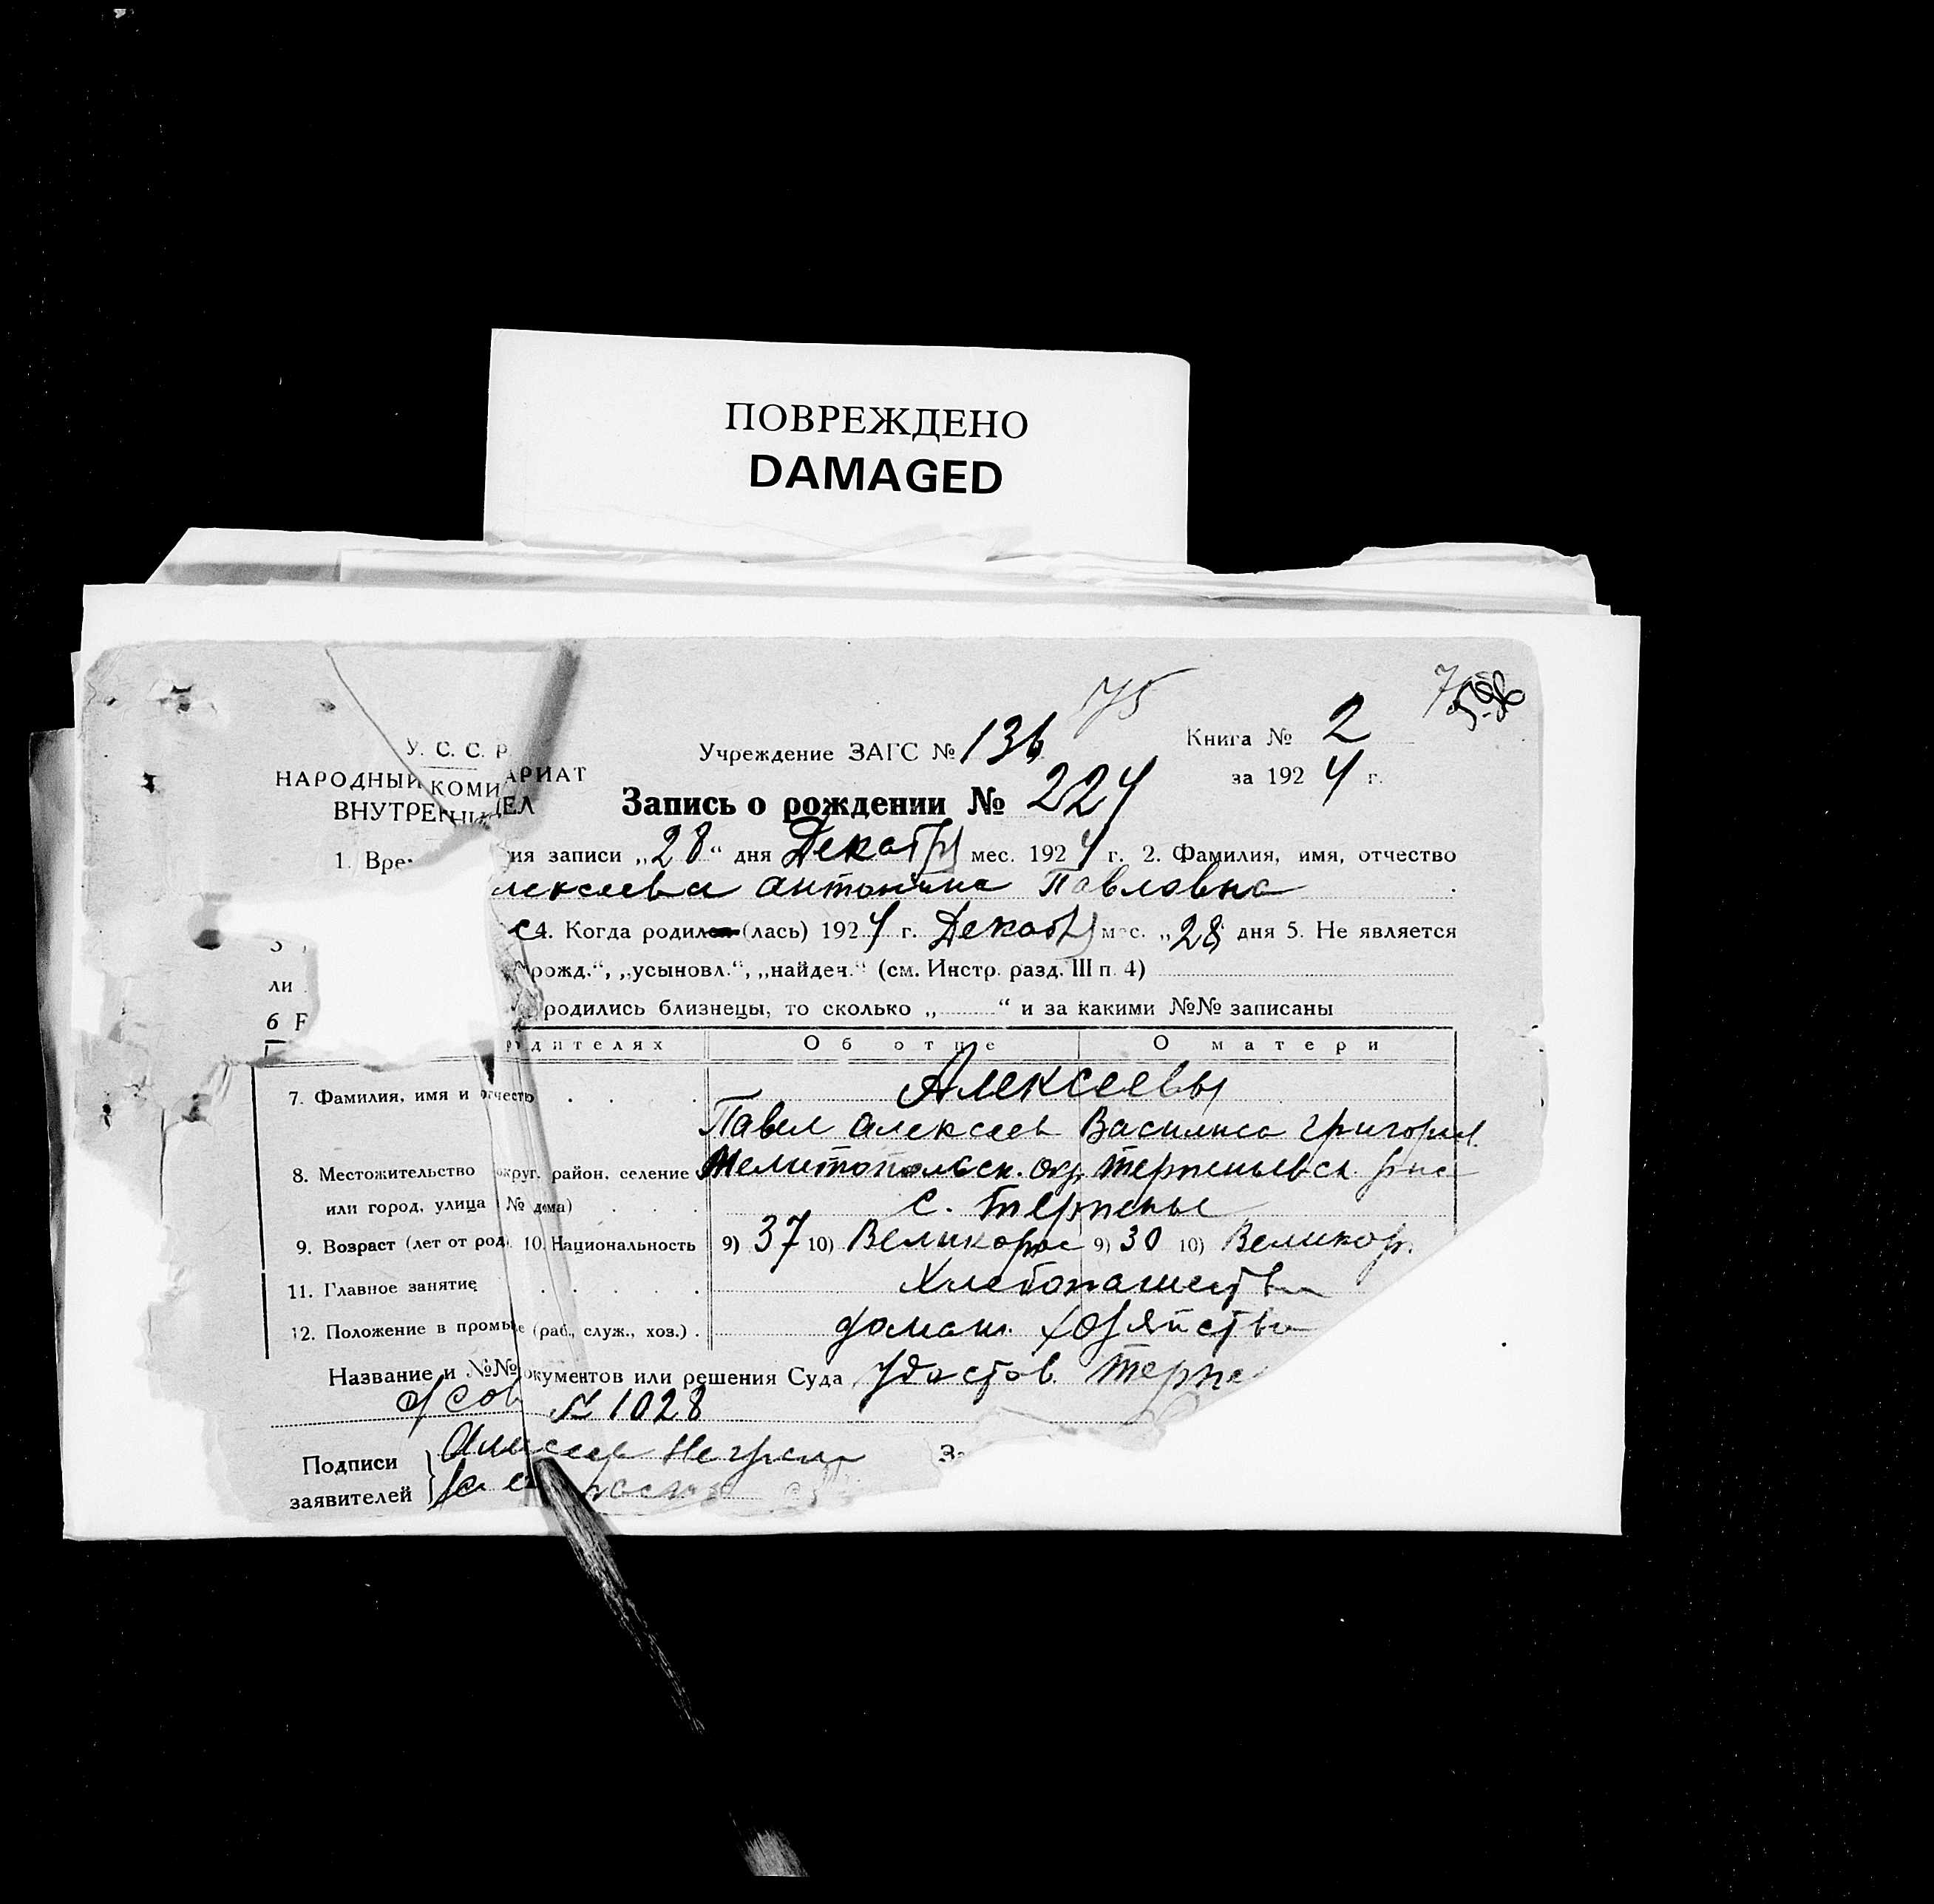 ПОВРЕЖДЕНО
DAMAGED
75
У. С. С. Р.
Учреждение ЗАГС № 136
Книга № 2
НАРОДНЫЙ КОМИ АРИАТ
за 1924 г.
ВНУТРЕННИ ДЕЛ
Запись о рождении № 224
1. Вре ия записи „28“ дня Декабр мес. 1924 г. 2. Фамилия, имя, отчество
лексеева Антонина Павловна
4. Когда родился (лась) 1924 г. Декабр мес. „28“ дня 5. Не является
ли рожд.“, „усыновл.“, „найден.“ (см. Инстр. разд. III п. 4)
6 родились близнецы, то сколько „ “ и за какими №№ записаны
родителях Об отце О матери
7. Фамилия, имя и отчество Алексеевы
Павел Алексеев Василиса Григорьев.
8. Местожительство округ, район, селение Мелитопольск. окр. Терпеньевск. р-на
или город, улица № дома) с. Терпенье
9. Возраст (лет от род. 10. Национальность 9) 37 10) Великорос 9) 30 10) Великор.
11. Главное занятие Хлебопашеств
12. Положение в промы (раб., служ., хоз.) домаш. хозяйств
Название и №№ документов или решения Суда Удостов. Терпе
сов № 1028
Подписи
заявителей